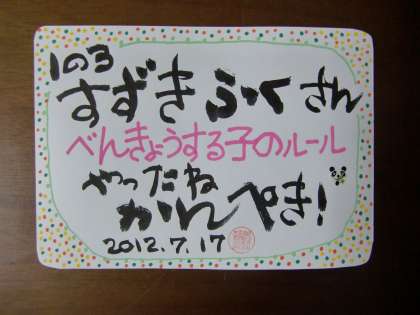 1の3
すずき ふく さん
べんきょうする子のルール
やっだね
かんぺき!
2012.7.17